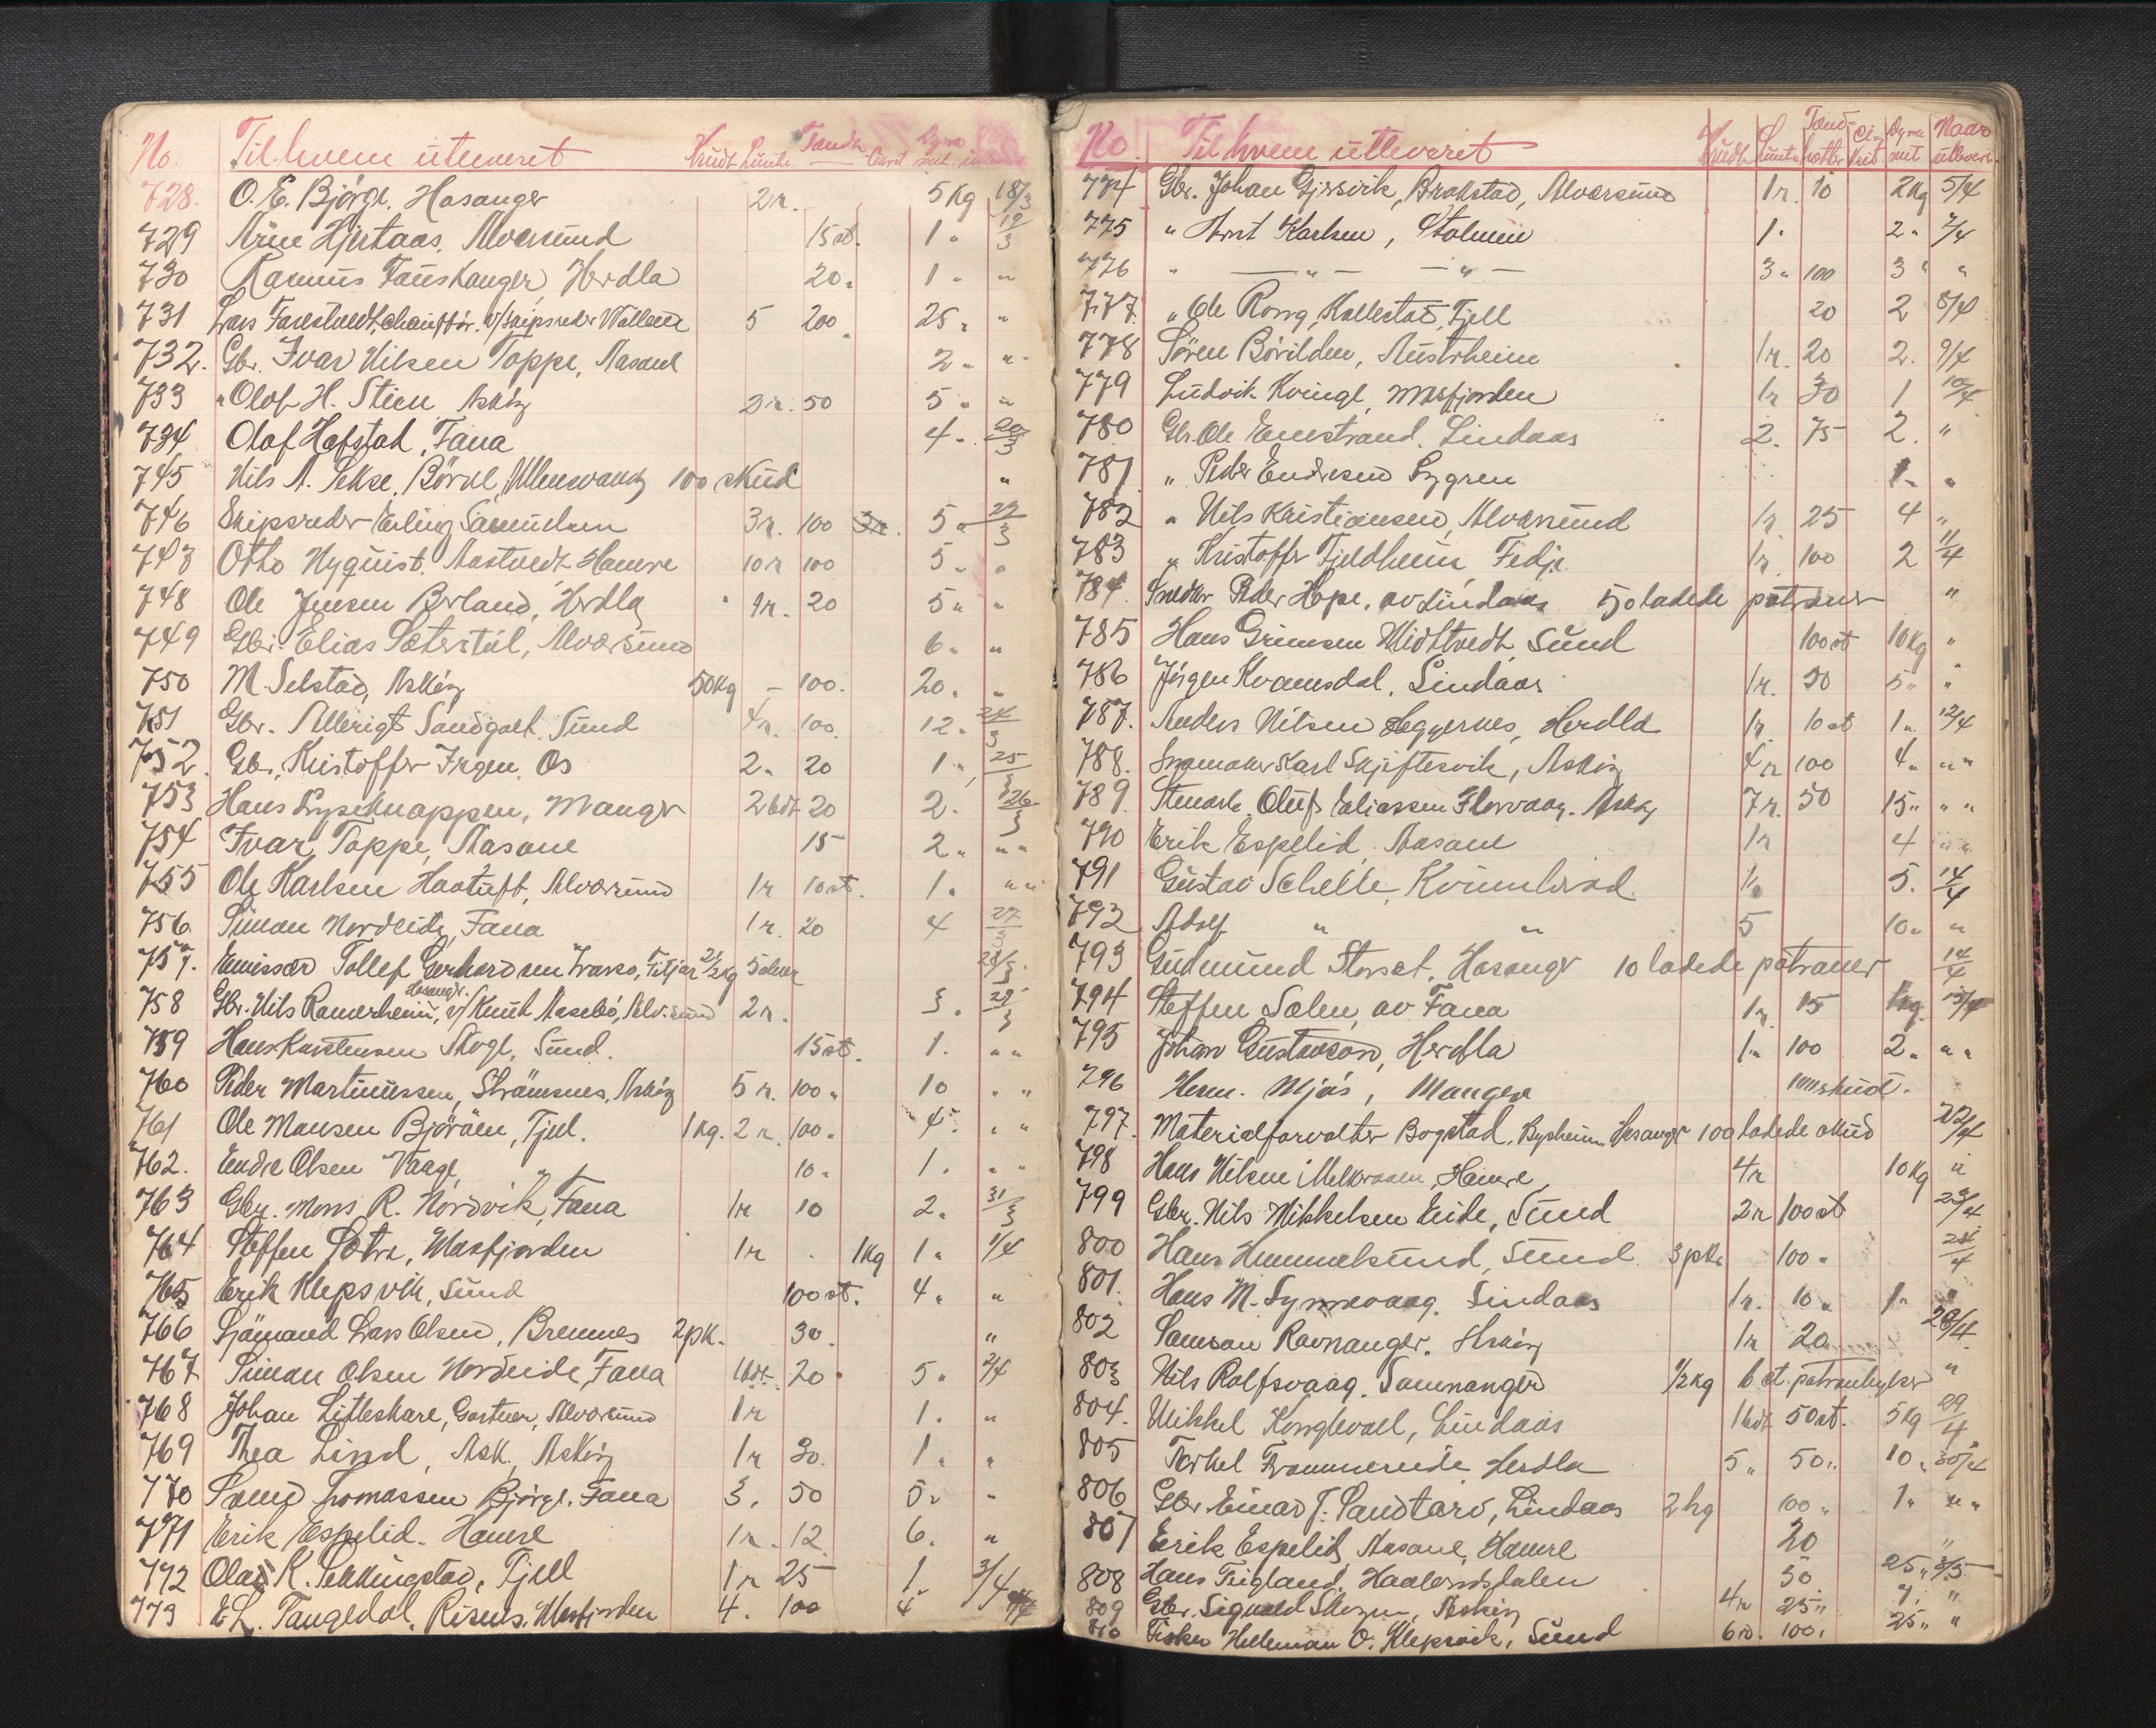 No. Til hvem utleveret Krudt Lunte Tændh. Dyna mit
728. O. E. Björge. Hosanger 2 r. 5 Kg 18/3
729 Arne Hjertaas, Alversund 15 st. 1 " 19/3
730 Rasmus Fauskanger, Herdla 20 " 1 " "
731 Lars Farestvedt, chaufför. v/skipsreder Wallem 5 200 25 " "
732. Gbr. Ivar Nilsen Toppe, Aasane 2 " "
733 " Olof H. Stien Askøy 2 r. 50 5 " "
734 Olaf Hafstad, Fana 4 " 20/3
745 Nils A. Sekse, Börve, Ullensvang 100 skud "
746 Skipsreder Erling Samuelsen 3 r. 100 5 " 22/3
747 Otto Nyquist. Aastvedt Hamre 10 r 100 5 " "
748 Ole Jensen Berland, Herdla 9 r. 20 5 " "
749 Gbr. Elias Sæterstöl, Alversund 6 " "
750 M. Selstad, Askøy 50 Kg - 100. 20 " "
751 Gbr. Allerigt Sandgolt. Sund 4 r. 100 12 " 24/3
752. Gbr. Kristoffer Irgen, Os 2 " 20 1 " 25/3
753 Hans Lyseknappen, Manger 2 bdt 20 2 " 26/3
754 Ivar Toppe, Aasane 15 2 " " "
755 Ole Karlsen Haatuft, Alversund 1 r 10 st. 1 " " "
756. Simon Nordeide, Fana 1 r. 20 4 27/3
757. Emissær Tollef Gerhard Fitjar 2 1/2 kg 28/3
758 Gbr. Nils Ramerheim, Hosanger. v/ Knut Aasebö, Alv.sund 2 r. 3 " 29/3
759 Hans Karstensen Skoge, Sund. 15 st. 1 " " "
760 Peder Martinussen, Strömsnes, Askøy 5 r. 100 " 10 " "
761 Ole Monsen Björöen, Fjell. 1 Kg. 2 r. 100 " 4 " " "
762. Endre Olsen Vaage " 10 " 1 " " "
763 Gbr. Mons R. Nordvik, Fana 1 r 10 2 " 31/3
764 Steffen Sötre, Masfjorden 1 r 1 kg 1 " 1/4
765 Erik Klepsvik, Sund 100 st. 4 " "
766 Sjömand Lars Olsen, Bremnes 2 pk. 30. "
767 Simon Olsen Nordeide, Fana 1 bdt. 20 " 5 " 2/4
768 Johan Litleskare, Gartner, Alversund 1 r 1 " "
769 Thea Lind, Ask, Askøy 1 r 30. 1 " "
770 Thomassen Björge. Fana 3 " 50 5 " "
771 Erik Espelid. Hamre 1 r. 12 6 " "
772 Olai K. Sekkingstad, Fjell 1 r 25 1 " 3/4
773 E. L. Tangedal. Risnes. Masfjorden 4 " 100 4 "
No. Til hvem utleveret Krudt Lunte Tænd-hætter Dyna mit Naar utlevert
774 Gbr. Johan Gjervik, Brakstad, Alversund 1 r. 10 2 kg 5/4
775 " Arnt Karlsen, Stolmen 1 " 2 " 7/4
776 " — " — — " — 3 " 100 3 " "
777. " Ole Rong, Kallestad, Fjell 20 2 8/4
778 Sören Börilden, Austrheim 1 r. 20 2 " 9/4
779 Ludvik Kvinge, Masfjorden 1 r 30 1 10/4
780 Gbr. Ole Ennestrand. Lindaas 2. 75 2. "
781 " Peder Endresen Lygren 1 " "
782 " Nils Kristiansen, Alversund 1 r 25 4 "
783 " Kristoffer Tjeldheim, Fedje 1 r. 100 2 11/4
784. Snedker Peder Hope, av Lindaas 50 ladede patroner "
785 Hans Grimsen Midttvedt, Sund 100 st 10 kg "
786 Jörgen Kvamsdal, Lindaas 1 r. 30 5 " "
787. Anders Nilsen Hæggernes, Herdla 1 r 10 st 1 " 12/4
788. Karl Skjeftesvik, Askøy 4 r 100 4 " " "
789. Stenarb. Oluf Eliassen Florvaag. Askøy 7 r. 50 15 " " "
790 Erik Espelid. Aasane 1 r 4 " "
791 Gustav Schelle, Kvinnherad 5. 14/4
792 Adolf " " 5 10 " "
793 Gudmund Storset, Hosanger 10 ladede patroner 14/4
794 Steffen Solem, av Fana 1 r. 15 1 kg 15/4
795 Johan Gustavson, Herdla 1 " 100 2 " " "
796 Herm. Mjøs, Manger skud.
797. Materialforvalter Bogstad, Bysheim Hosanger 100 ladede skud 22/4
798 Hans Nilsen i Melkraaen, Hamre 4 r 10 Kg "
799 Gbr. Nils Mikkelsen Eide, Sund 2 r 100 st 23/4
800 Hans Hummelsund, Sund 3 pk. 100 " 24/4
801. Hans M. Synnevaag. Lindaas 1 r. 10 " 1 " "
802 Samson Ravnanger. Askøy 1 r 20 28/4
803 Nils Rolfsvaag. Samnanger 1/2 kg 6 st. patronhylser "
804. Mikkel Konglevoll, Lindaas 1 bdt. 50 st. 5 kg 29/4
805 Torkel Frammereide Herdla 5 " 50 " 10 " 30/4
806 Gbr Einar J. Sandtorv, Lindaas 2 kg 100 " 1 " " "
807 Erik Espelid, Aasane, Hamre 20 "
808 Hans Tvigland. Haalandsdalen 50 25 " 3/5
809 Gbr. Sigvald Skogen, Askøy 4 r 25 " 7. "
810 Fisker Helleman O. Klepsvik, Sund 6 r. 100 " 25 " "